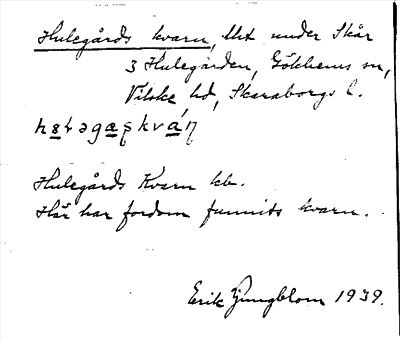 Hulegårds kvarn, lht under Skår
3 Hulegården, Gökhems sn,
Vilske hd, Skaraborgs l.
Hulegårds Kvarn kb.
Här har fordom funnits kvarn.
Erik Ljungblom 1939.